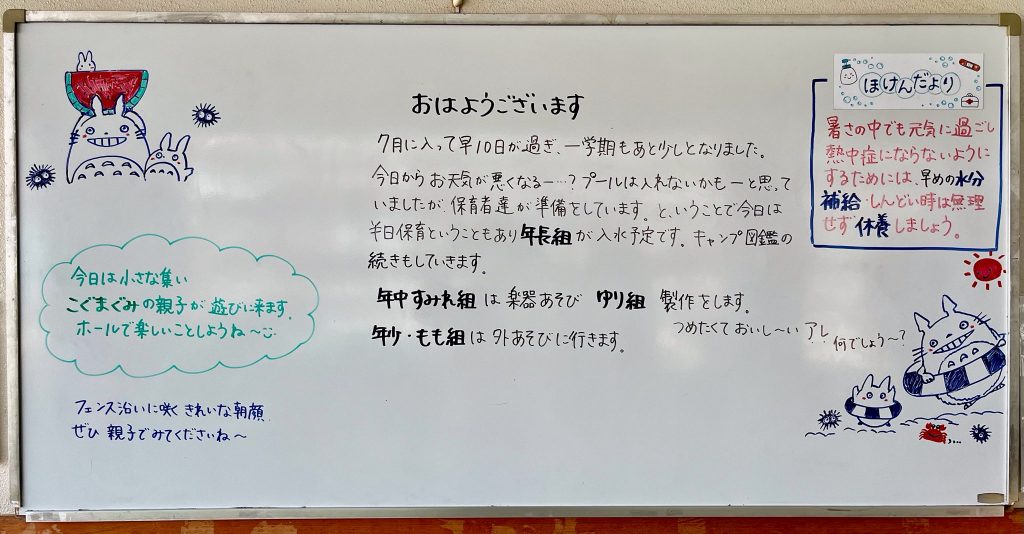 おはようございます
7月に入って早10日が過ぎ、一学期もあと少しとなりました。
今日からお天気が悪くなるー…？プールは入れないかもーと思って
いましたが、保育者達が準備をしています。と、いうことで今日は
半日保育ということもあり年長組が入水予定です。キャンプ図鑑の
続きもしていきます。
年中すみれ組は楽器あそび ゆり組 製作をします。
つめたくておいし〜い アレ 何でしょう〜？
年少・もも組は外あそびに行きます。
今日は小さな集い
こぐまぐみの親子が遊びに来ます。
ホールで楽しいことしようね〜
フェンス沿いに咲くきれいな朝顔
ぜひ親子でみてくださいね〜
ほけんだより
暑さの中でも元気に過ごし
熱中症にならないように
するためには、早めの水分
補給・しんどい時は無理
せず休養しましょう。